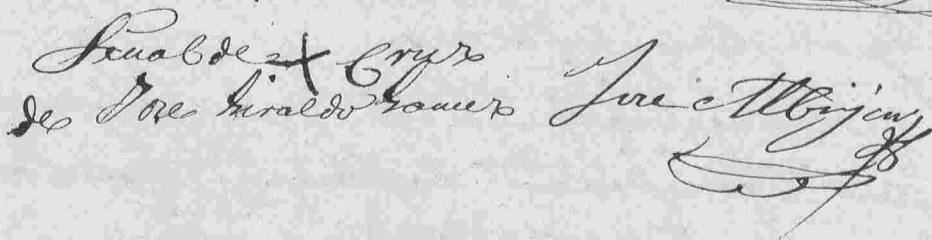 Señal de + Cruz
de Jose Giraldo Ramirez Jose Albizu